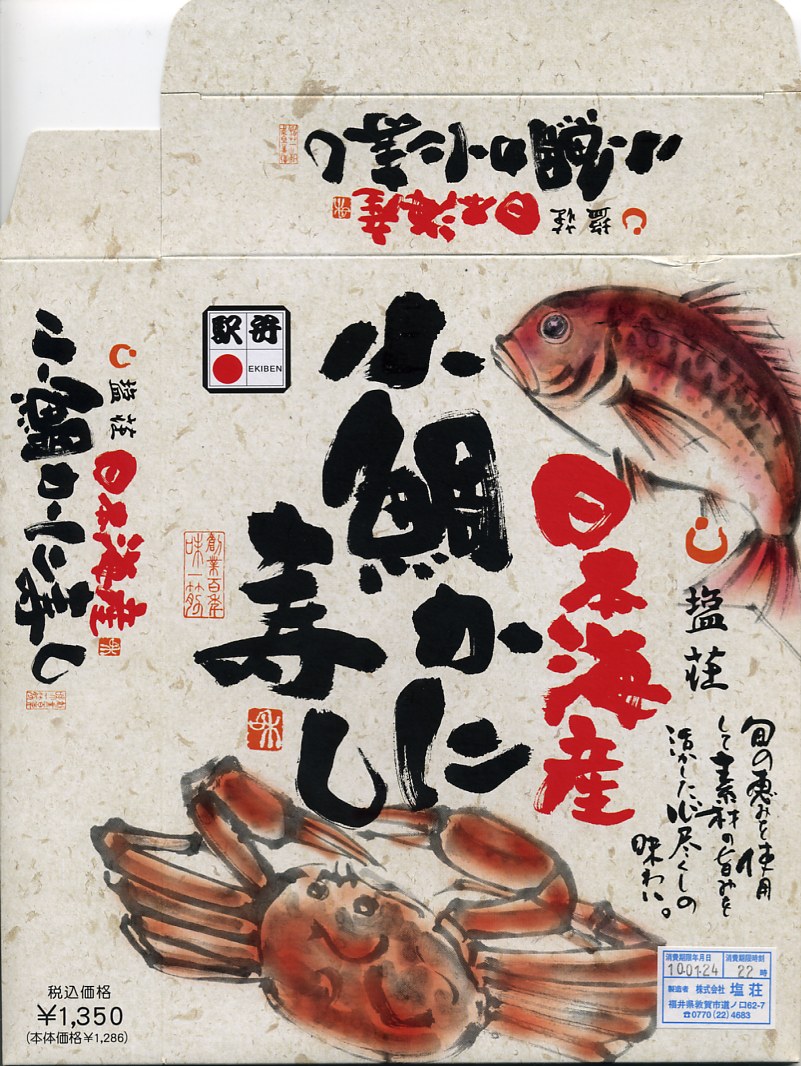 小鯛かに寿し
日本海産
塩荘
駅弁
EKIBEN
小鯛かに
寿し
日本海産
塩荘
創業百年
味一筋
味
旬の恵みを使用
して素材の旨みを
活かした心尽くしの
味わい。
小鯛かに寿し
日本海産
塩荘
税込価格
¥1,350
(本体価格¥1,286)
消費期限年月日
10.01.24
消費期限時刻
22時
製造者 株式会社 塩荘
福井県敦賀市道ノ口62-7
☎0770(22)4683